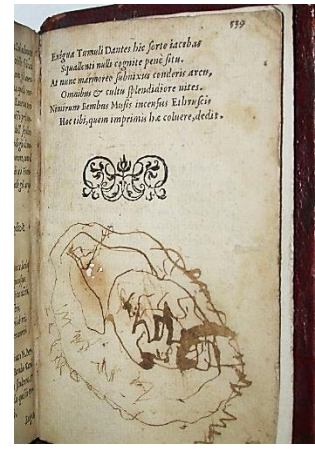 539
Exigua Tumuli Dantes hic sorte iacebas
Squallenti nulli cognite penè situ.
At nunc marmoreo subnixus conderis arcu,
Omnibus & cultu splendidiore nites.
Nimirum Bembus Musis incensus Ethruscis
Hoc tibi, quem imprimis hæ coluere, dedit.